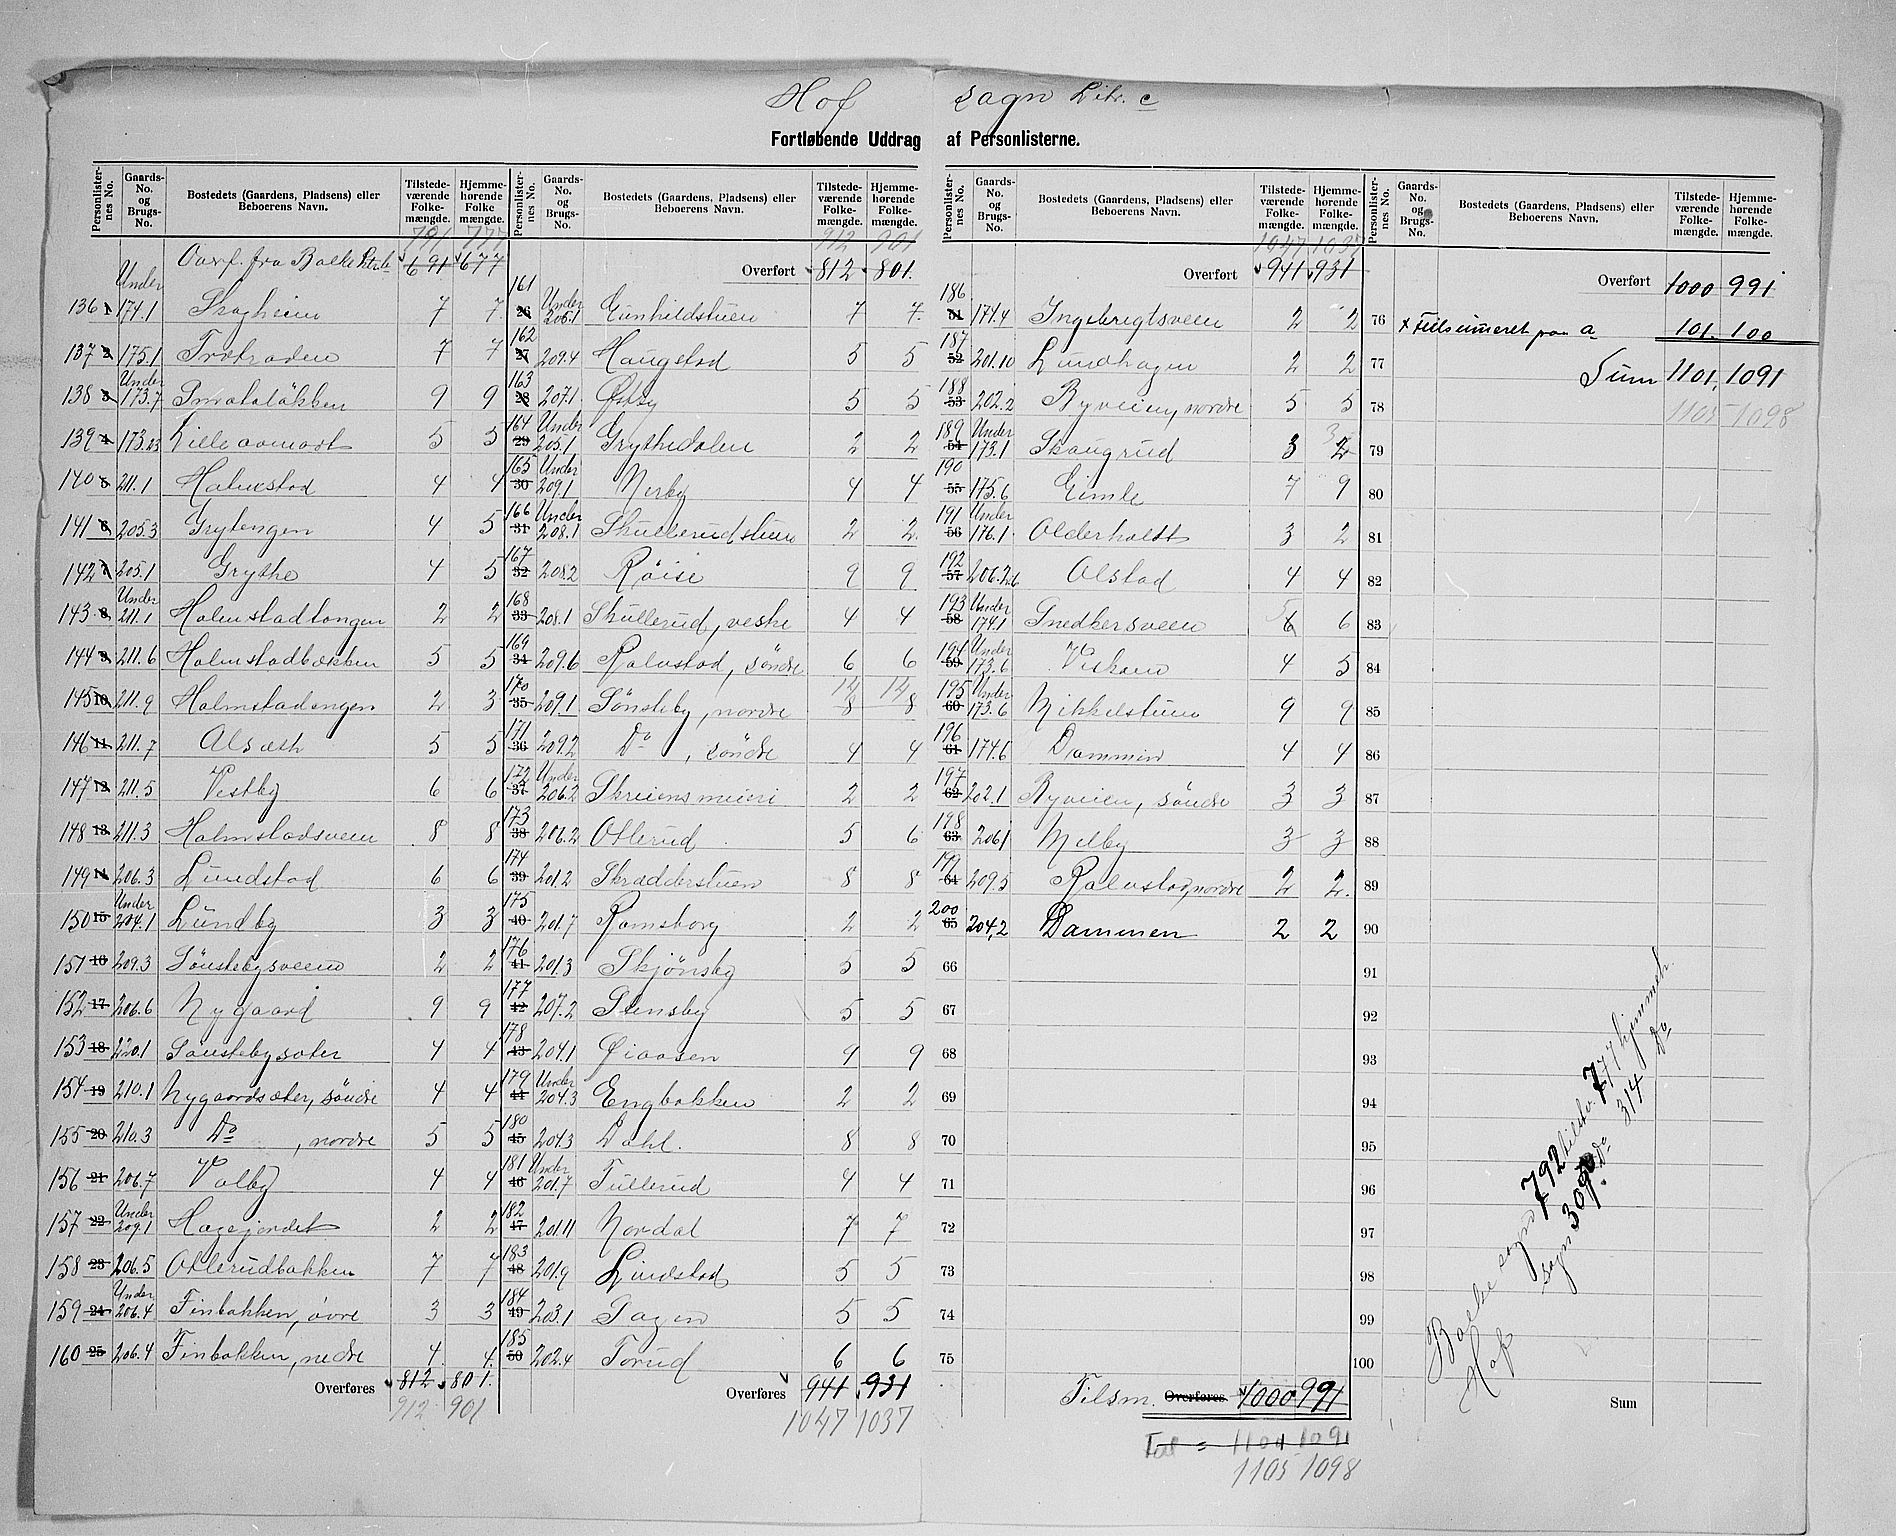 Hof sogn Litr. c
Fortløbende Uddrag af Personlisterne.
Personlisternes No. Gaards-No. og Brugs-No. Bostedets (Gaardens, Pladsens) eller Beboerens Navn. Tilstedeværende Folkemængde. Hjemmehørende Folkemængde.
791 777
Overf. fra Balke 691 677
136 1 Under 174.1 Skogheim 7 7
137 2 175.1 7 7
138 3 Under 173.7 9 9
139 4 173.23 5 5
140 5 211.1 Holmstad 4 4
141 6 205.3 Grytengen 4 5
142 7 205.1 Grythe 4 5
143 8 Under 211.1 Holmstadtangen 2 2
144 9 211.6 Holmstadbækken 5 5
145 10 211.9 Holmstadengen 2 3
146 11 211.7 Alseth 5 5
147 12 211.5 Vestby 6 6
148 13 211.3 Holmstadsveen 8 8
149 14 206.3 Lundstad 6 6
150 15 Under 204.1 Lundby 3 3
151 16 209.3 Sönstebysveen 2 2
152 17 206.6 Nygaard 9 9
153 18 220.1 Sönstebysæter 4 4
154 19 210.1 Nygaardsæter, söndre 4 4
155 20 210.3 Do , nordre 5 5
156 21 206.7 Volby 4 4
157 22 Under 209.1 Hagejordet 2 2
158 23 206.5 Otterudbakken 7 7
159 24 Under 206.4 Finbakken, övre 3 3
160 25 206.4 Finbakken, nedre 4 4
Overføres 812 801
912 901
Personlisternes No. Gaards-No. og Brugs-No. Bostedets (Gaardens, Pladsens) eller Beboerens Navn. Tilstedeværende Folkemængde. Hjemmehørende Folkemængde.
912 901
Overført 812 801
161 26 Under 205.1 Gunhildstuen 7 7
162 27 209.4 Haugstad 5 5
163 28 207.1 Østby 5 5
164 29 Under 205.1 Grythedalen 2 2
165 30 Under 209.1 Nerby 4 4
166 31 Under 208.1 Skullerudstuen 2 2
167 32 208.2 Röise 9 9
168 33 208.1 Skullerud, vestre 4 4
169 34 209.6 Ralustad, söndre 6 6
14 14
170 35 209.1 Sönsteby, nordre 8 8
171 36 209.2 Do , söndre 4 4
172 37 Under 206.2 Skreiens meieri 2 2
173 38 206.2 Otterud 5 6
174 39 201.2 Skrædderstuen 8 8
175 40 201.7 Ramsborg 2 2
176 41 201.3 Skjönsby 5 5
177 42 207.2 Stensby 5 5
178 43 204.1 Øiaasen 9 9
179 44 Under 204.3 Engbakken 2 2
180 45 204.3 Dahl. 8 8
181 46 Under 201.7 Fullerud 4 4
182 47 201.11 Nordal 7 7
183 48 201.9 Lindstad 5 5
184 49 203.1 5 5
185 50 202.4 Torud 6 6
Overføres 941 931
1047 1037
Personlisternes No. Gaards-No. og Brugs-No. Bostedets (Gaardens, Pladsens) eller Beboerens Navn. Tilstedeværende Folkemængde. Hjemmehørende Folkemængde.
1047 1037
Overført 941 931
186 51 174.4 Ingebrigtsveen 2 2
187 52 201.10 Lundhagen 2 2
188 53 202.2 Ryveien, nordre 5 5
189 54 Under 173.1 Skaugrud 3 2 3
190 55 175.6 Gimle 7 9
191 56 Under 176.1 Olderholdt 3 2
192 57 206.26 Olstad 4 4
193 58 Under 174.1 Snedkersveen 5 6 6
194 59 Under 173.6 4 5
195 60 Under 173.6 Nikkelstuen 9 9
196 61 174.6 Dammen 4 4
197 62 202.1 Ryveien, söndre 3 3
198 63 206.1 Melby 3 3
199 64 209.5 Ralustad, nordre 2 2
200 65 204.2 Dammen 2 2
66
67
68
69
70
71
72
73
74
75
Tilsm. Overføres 1000 991
Tot = 1101 1091
1105 1098
Personlisternes No. Gaards-No. og Brugs-No. Bostedets (Gaardens, Pladsens) eller Beboerens Navn. Tilstedeværende Folkemængde. Hjemmehørende Folkemængde.
Overført 1000 991
76 x Feilsumeret paa a 101 100
77 Sum 1101, 1091
78 1105 1098
79
80
81
82
83
84
85
86
87
88
89
90
91
92
93
94
95
96
97
98
99
100
Sum
Balke sogn 792 tilstv. 777 hjemmeh.
Hof sogn 309 do 314 do